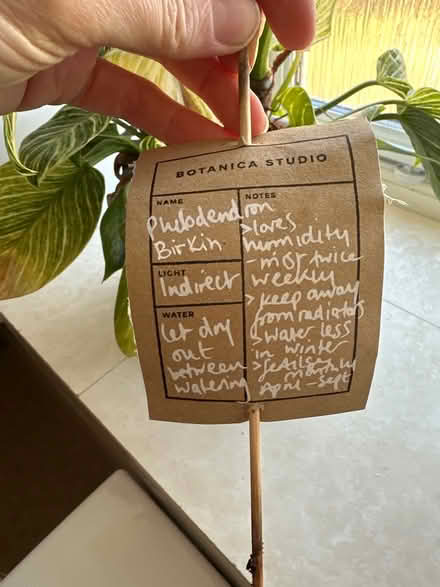 BOTANICA STUDIO
NAME
Philodendron
Birkin
LIGHT
Indirect
WATER
Let dry
out
between
watering
NOTES
> loves
humidity
- mist twice
weekly
> keep away
from radiators
> water less
in winter
monthly
April - Sept